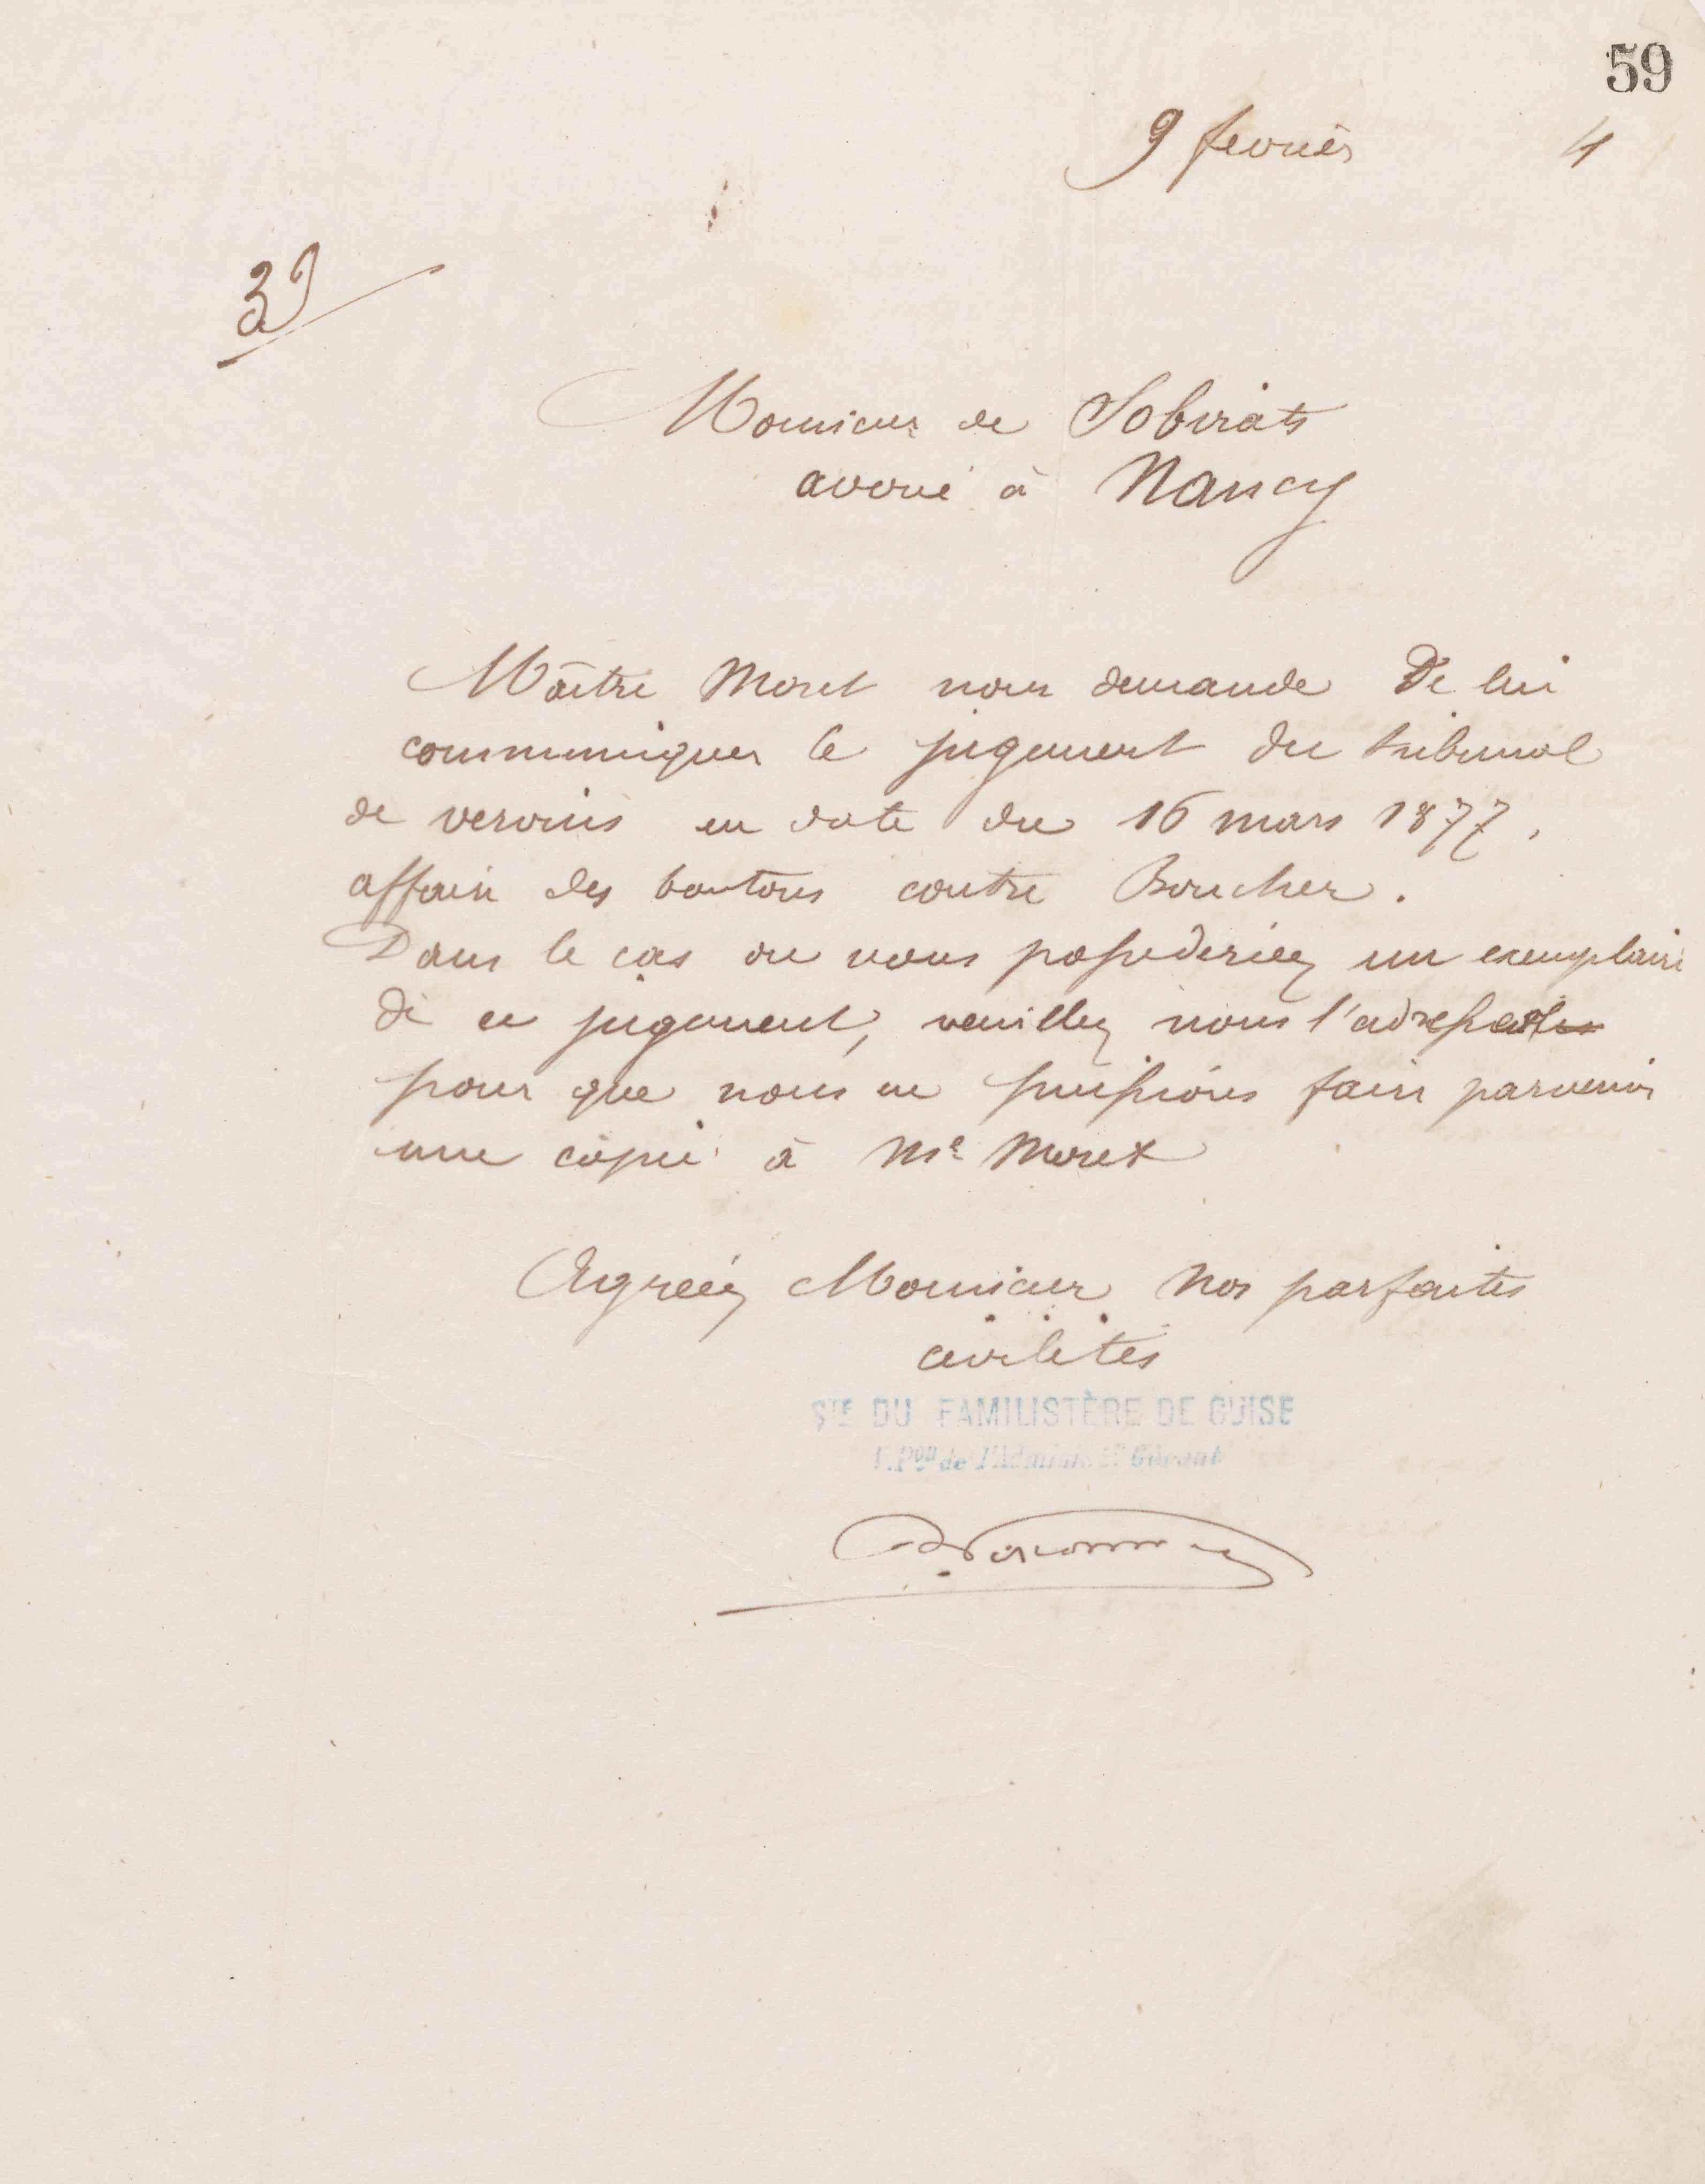 59
9 fevrier 4
39
Monsieur de Sobirats
avoué à Nancy
Maître Moret nous demande De lui
communiquer le jugement du tribunal
de vervins en date du 16 mars 1877,
affaire des boutons contre Boucher.
Dans le cas ou vous possederiez un exemplaire
de ce jugement, veuillez nous l'adresser
pour que nous en puissions faire parvenir
une copie à Me Moret
Agréez Monsieur Nos parfaites
civilités
STÉ DU FAMILISTÈRE DE GUISE
P.Pon de l'Administr Gérant